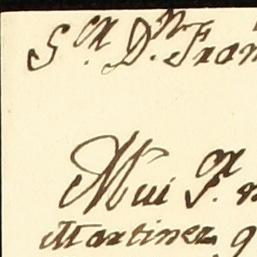 S.or D.n Fran
Mui S.or m
Martinez q